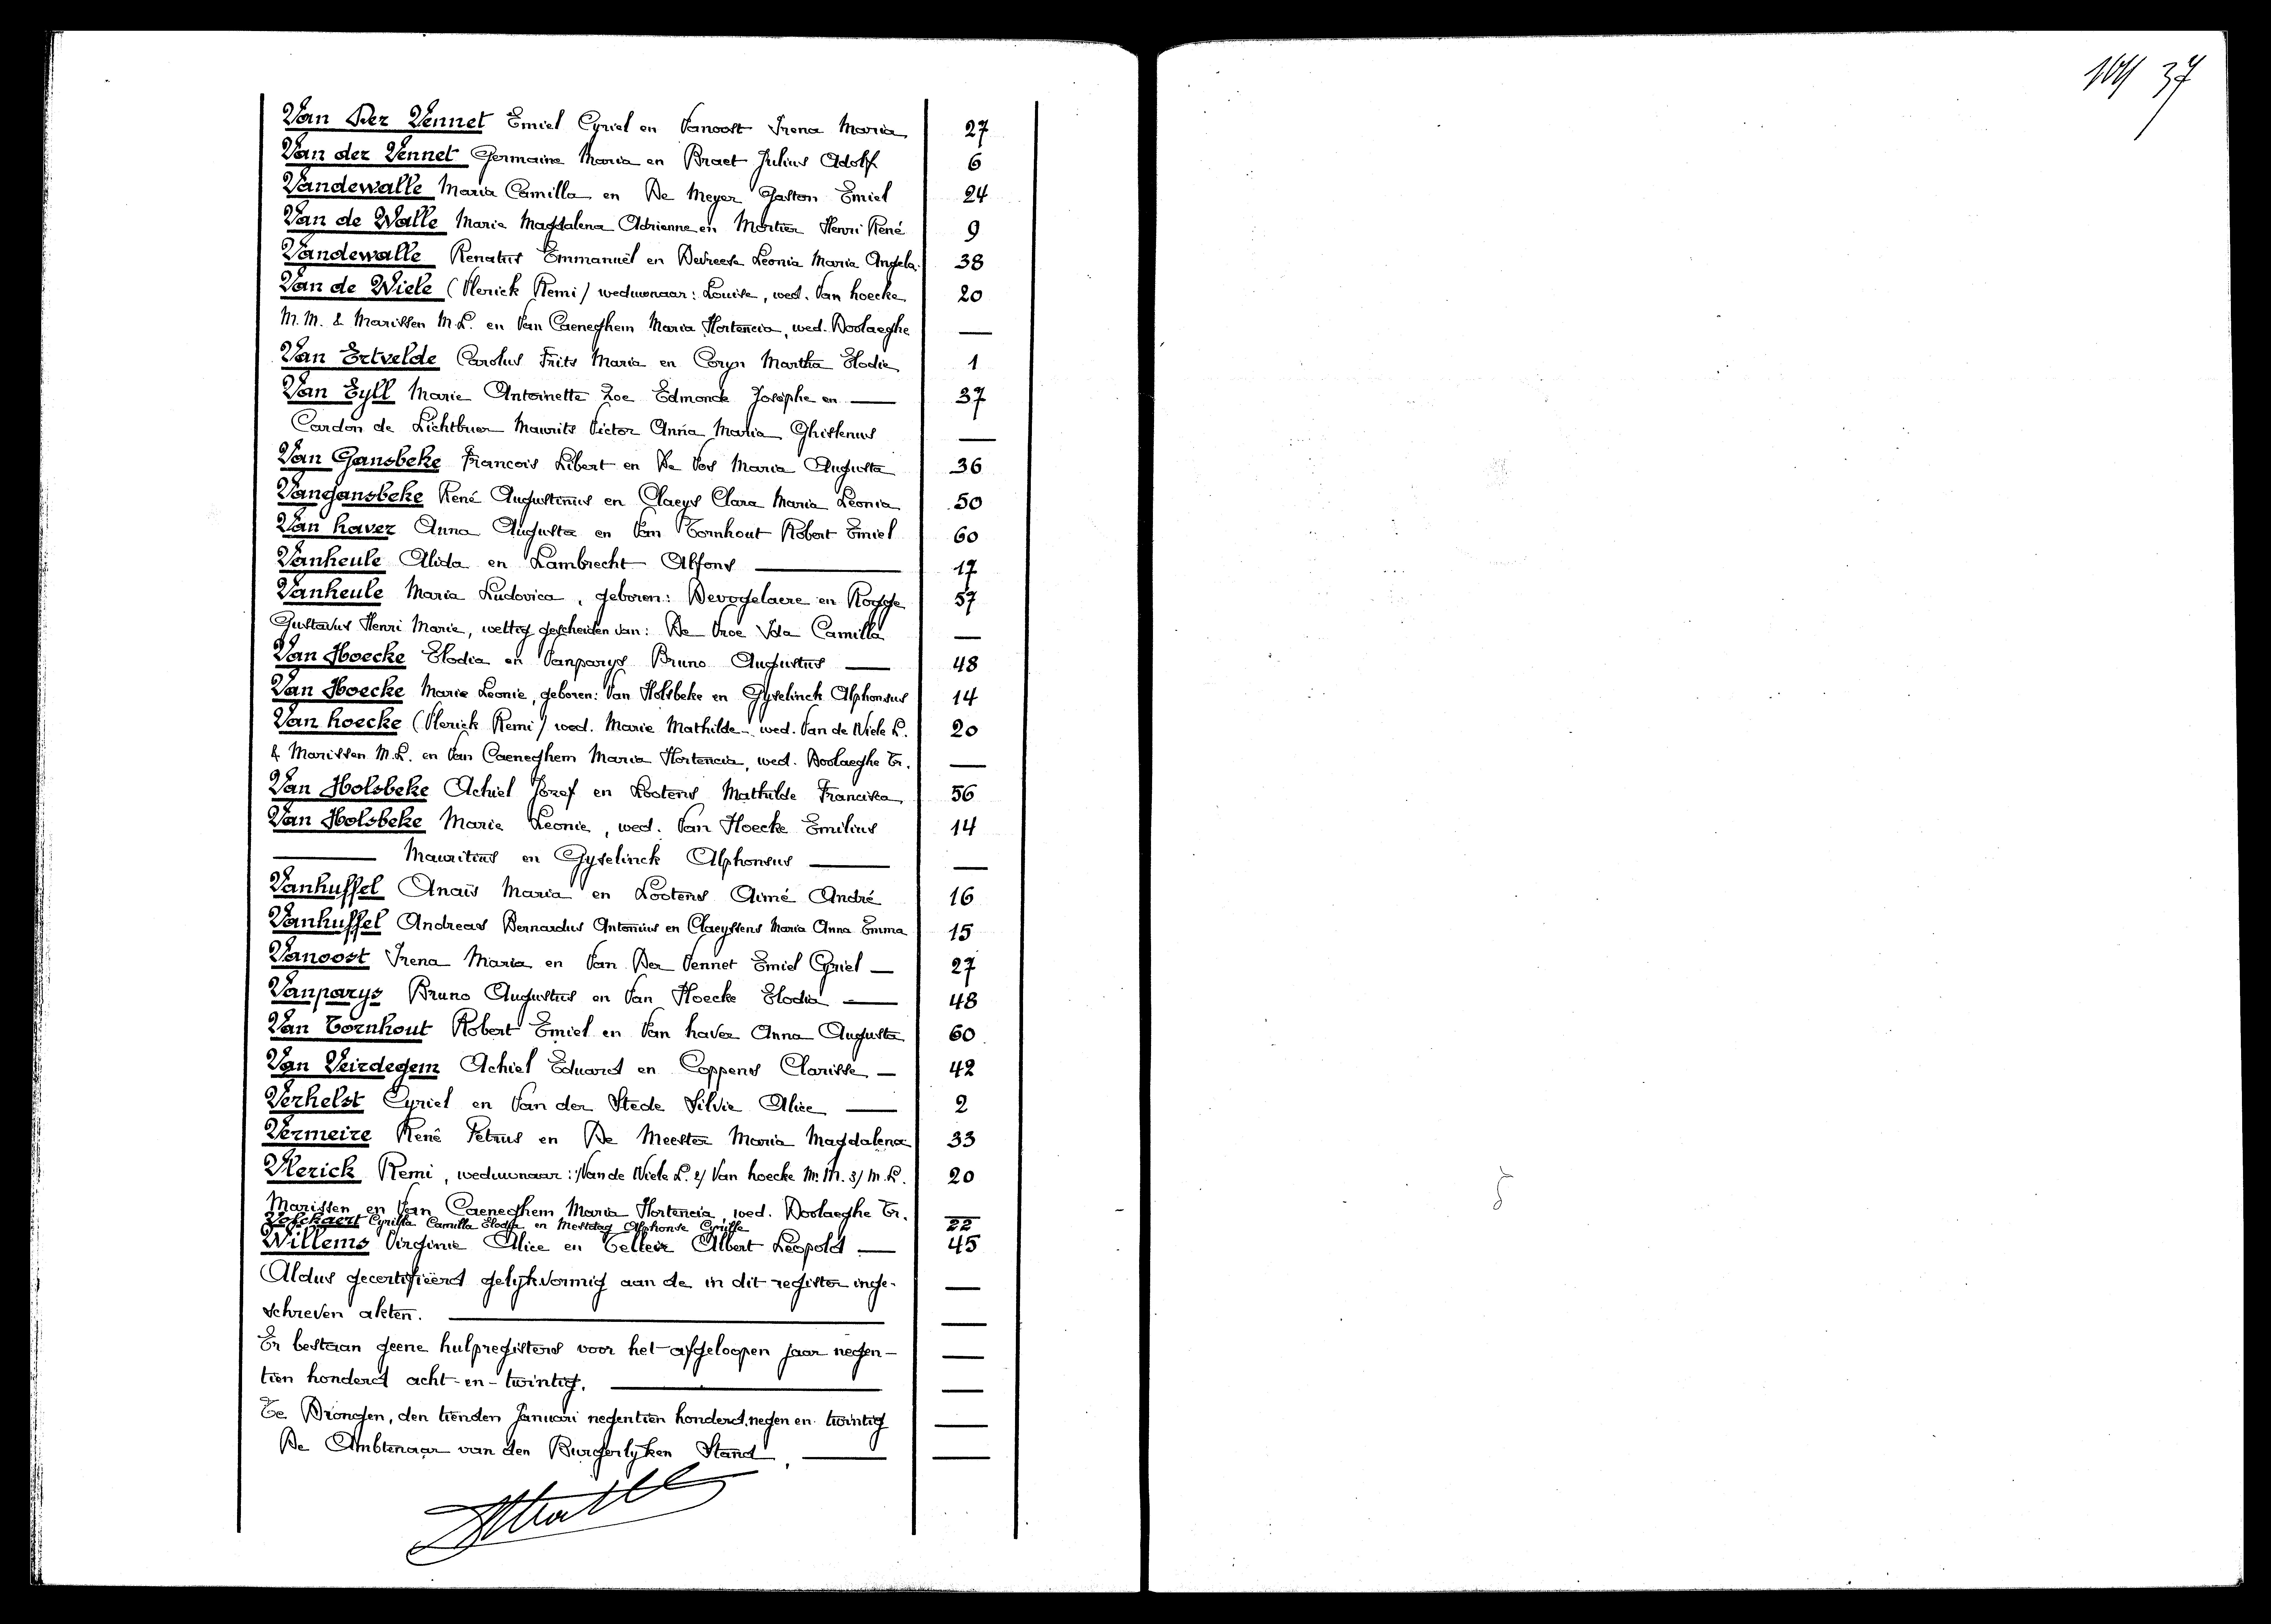 Van Der Vennet Emiel Cyriel en Vanoost Irena Maria 27
Van der Vennet Germaine Maria en Braet Julius Adolf 6
Vandewalle Maria Camilla en De Meyer Gaston Emiel 24
Van de Walle Marie Magdalena Adrienne en Mortier Henri René 9
Vandewalle Renatus Emmanuël en Devreese Leonia Maria Angela. 38
Van de Wiele (Vlerick Remi) weduwnaar: Louise, wed. Van hoecke 20
M.M. & Marissen M.L. en Van Caeneghem Maria Hortencia, wed. Doolaeghe —
Van Ertvelde Carolus Frits Maria en Coryn Martha Elodie 1
Van Eyll Marie Antoinette Zoe Edmonde Josephe en — 37
Cardon de Lichtbuer Maurits Victor Anna Maria Ghislenus —
Van Gansbeke Francois Libert en De Vos Maria Augusta 36
Vangansbeke René Augustinus en Claeys Clara Maria Leonia 50
Van haver Anna Augusta en Van Tornhout Robert Emiel 60
Vanheule Alida en Lambrecht Alfons — 17
Vanheule Maria Ludovica, geboren: Devogelaere en Rogge 57
Gustavus Henri Marie, wettig gescheiden van: De Vroe Ida Camilla —
Van Hoecke Elodia en Vanparys Bruno Augustus — 48
Van Hoecke Marie Leonie, geboren: Van Holsbeke en Gyselinck Alphonsus 14
Van hoecke (Vlerick Remi) wed. Marie Mathilde -. wed. Van de Wiele L. 20
& Marissen M.L. en Van Caeneghem Maria Hortencia, wed. Doolaeghe Tr. —
Van Holsbeke Achiel Jozef en Lootens Mathilde Francisca 56
Van Holsbeke Marie Leonie, wed. Van Hoecke Emilius 14
— Mauritius en Gyselinck Alphonsus — —
Vanhuffel Anaïs Maria en Lootens Aimé André 16
Vanhuffel Andreas Bernardus Antonius en Claeyssens Maria Anna Emma 15
Vanoost Irena Maria en Van Der Vennet Emiel Cyriel — 27
Vanparys Bruno Augustus en Van Hoecke Elodia — 48
Van Tornhout Robert Emiel en Van haver Anna Augusta 60
Van Veirdegem Achiel Eduard en Coppens Clarisse — 42
Verhelst Cyriel en Van der Stede Silvie Alice — 2
Vermeire René Petrus en De Meester Maria Magdalena 33
Vlerick Remi, weduwnaar: 1/ Van de Wiele L. 2/ Van hoecke M. M. 3/ M.L. 20
Marissen en Van Caeneghem Maria Hortencia, wed. Doolaeghe Tr. —
Volckaert Cyrilla Camilla Elodia en Mestdag Alphonse Cyrille 22
Willems Virginie Alice en Telleir Albert Leopold — 45
Aldus gecertifiëerd gelykvormig aan de in dit register inge- —
schreven akten. — —
Er bestaan geene hulpregisters voor het afgeloopen jaar negen- —
tien honderd acht-en-twintig. — —
Te Drongen, den tienden Januari negentien honderd negen en twintig —
De Ambtenaar van den Burgerlyken Stand, — —
37